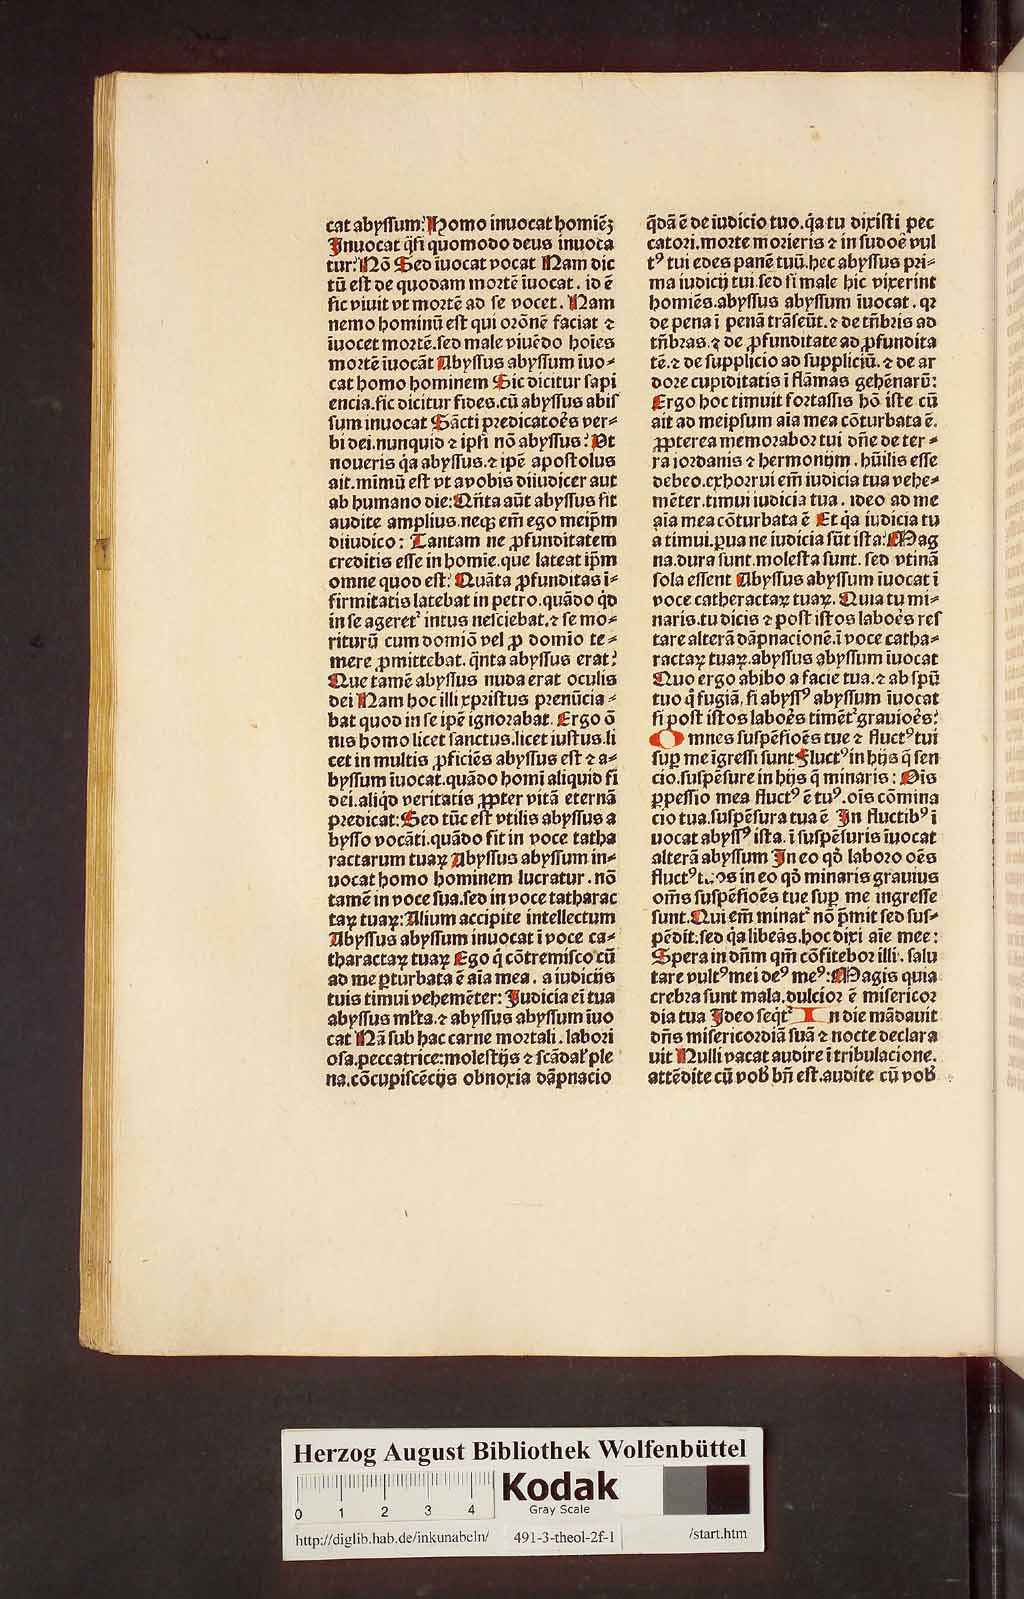 cat abyssum? Homo inuocat homiēꝫ
Inuocat q̄si quomodo deus inuoca
tur? Nō Sed īuocat vocat Nam dic
tū est de quodam mortē īuocat. id ē
sic viuit vt mortē ad se vocet. Nam
nemo hominū est qui orōnē faciat ⁊
īuocet mortē. sed male viuēdo hoīes
mortē īuocāt Abyssus abyssum īuo⸗
cat homo hominem Sic dicitur sapi
encia. sic dicitur fides. cū abyssus abis
sum inuocat Sācti predicatoēs ver⸗
bi dei. nunquid ⁊ ipsi nō abyssus? Ut
noueris q̇a abyssus. ⁊ ipē apostolus
ait. mīmū est vt avobis diiudicer aut
ab humano die. Qn̄ta aūt abyssus sit
audite amplius. neqꝫ em̄ ego meip̄m
diiudico: Tantam ne ꝓfunditatem
creditis esse in homīe. que lateat ip̄m
omne quod est? Quāta ꝓfunditas ī⸗
firmitatis latebat in petro. quādo qͥd
in se ageretᷣ intus nesciebat. ⁊ se mo⸗
riturū cum domīo vel ꝓ domīo te⸗
mere ꝓmittebat. q̄nta abyssus erat?
Que tamē abyssus nuda erat oculis
dei Nam hoc illi xpristus prenūcia⸗
bat quod in se ipē ignorabat. Ergo ō
nis homo licet sanctus. licet iustus. li
cet in multis ꝓficiēs abyssus est ⁊ a⸗
byssum īuocat. quādo homī aliquid fi
dei. aliqd̄ veritatis ꝓpter vitā eternā
predicat: Sed tūc est vtilis abyssus a
bysso vocāti. quādo fit in voce tatha
ractarum tuaꝝ Abyssus abyssum in⸗
uocat homo hominem lucratur. nō
tamē in voce sua. sed in voce tatharac
taꝝ tuaꝝ: Alium accipite intellectum
Abyssus abyssum inuocat ī voce ca⸗
tharactaꝝ tuaꝝ Ego q̄ cōtremisco cū
ad me ꝑturbata ē aīa mea. a iudicijs
tuis timui vehemēter: Judicia eī tua
abyssus ml̄ta. ⁊ abyssus abyssum īuo
cat Nā sub hac carne mortali. labori
osa. peccatrice: molestijs ⁊ scādal̄ ple
na. cōcupiscēcijs obnoxia dāpnacio
q̄dā ē de iudicio tuo. q̇a tu dixisti pec
catori. morte morieris ⁊ in sudoē vul
tꝰ tui edes panē tuū. hec abyssus pri⸗
ma iudicij tui. sed si male hic vixerint
homīēs. abyssus abyssum īuocat. qꝛ
de pena ī penā trāseūt. ⁊ de tn̄bris ad
tn̄bras. ⁊ de ꝓfunditate ad ꝓfundita
tē. ⁊ de supplicio ad suppliciū. ⁊ de ar
dore cupiditatis ī flāmas gehēnarū:
Ergo hoc timuit fortassis hō iste cū
ait ad meipsum aīa mea cōturbata ē.
ꝓpterea memorabor tui dn̄e de ter⸗
ra iordanis ⁊ hermonijm. hūilis esse
debeo. exhorrui em̄ iudicia tua vehe⸗
mēter. timui iudicia tua. ideo ad me
aīa mea cōturbata ē Et q̇a iudicia tu
a timui. ꝑua ne iudicia sūt ista? Mag
na. dura sunt. molesta sunt. sed vtinā
sola essent Abyssus abyssum īuocat ī
voce catheractaꝝ tuaꝝ. Quia tu mi⸗
naris. tu dicis ⁊ post istos laboēs res
tare alterā dāpnacionē. ī voce catha⸗
ractaꝝ tuaꝝ. abyssus abyssum īuocat
Quo ergo abibo a facie tua. ⁊ ab spū
tuo q̊ fugiā, si abyssꝰ abyssum īuocat
si post istos laboēs timētᷣ grauioēs?
Omnes suspēsioēs tue ⁊ fluctꝰ tui
suꝑ me īgressi sunt Fluctꝰ in hijs q̄ sen
cio. suspēsure in hijs q̄ minaris: Oīs
ꝑpessio mea fluctꝰ ē tuꝰ. oīs cōmina
cio tua. suspēsura tua ē In fluctibꝰ ī
uocat abyssꝰ ista. ī suspēsuris īuocat
alterā abyssum In eo qd̄ laboro oēs
fluctꝰ tuos in eo qd̄ minaris grauius
om̄s suspēsioēs tue suꝑ me ingresse
sunt. Qui em̄ minatᷣ nō p̄mit sed sus⸗
pēdit. sed q̇a libeās. hoc dixi aīe mee:
Spera in dn̄m qm̄ cōfitebor illi. salu
tare vultꝰ mei deꝰ meꝰ: Magis quia
crebra sunt mala. dulcior ē misericor
dia tua Ideo seqtᷣ In die mādauit
dn̄s misericordiā suā ⁊ nocte declara
uit Nulli vacat audire ī tribulacione.
attēdite cū vob̄ bn̄ est. audite cū vob̄
Herzog August Bibliothek Wolfenbüttel
0 1 2 3 4
Kodak
Gray Scale
http://diglib.hab.de/inkunabeln/ 491-3-theol-2f-1 /start.htm